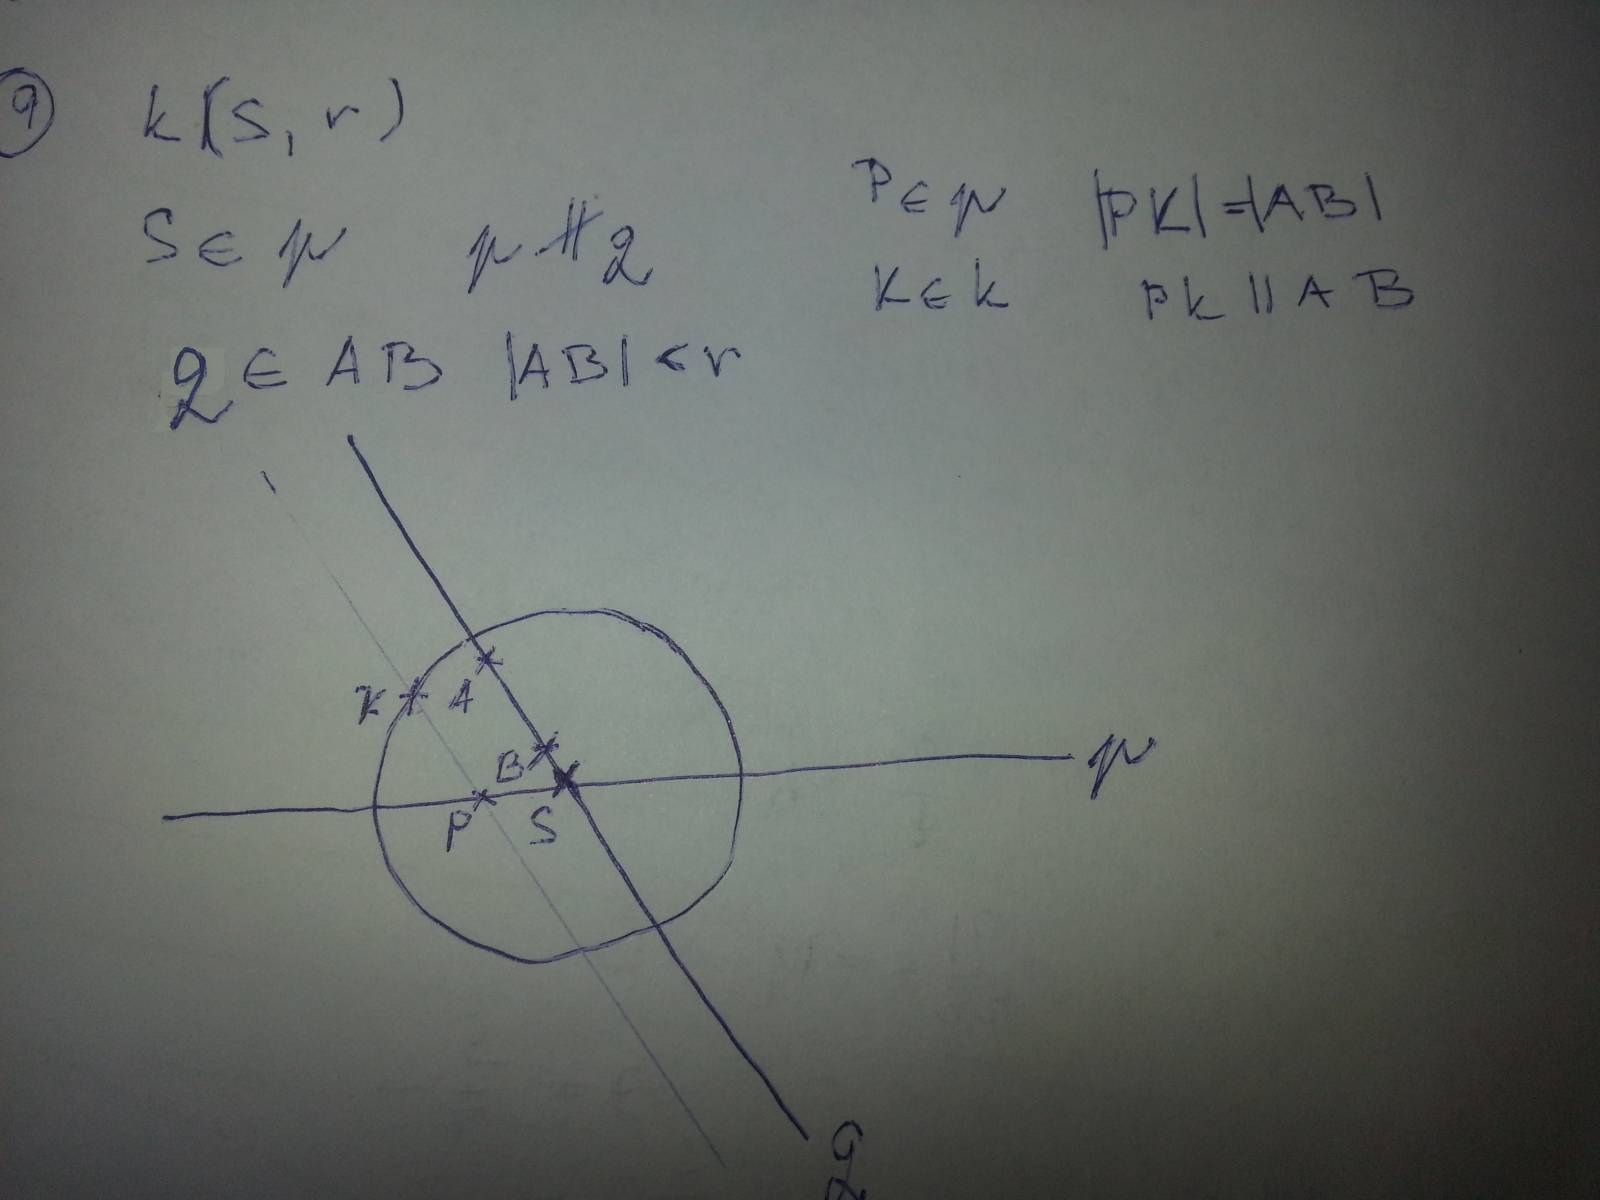 9
k(S, r)
S ∈ p p ∦ q
q ∈ AB |AB| < r
P ∈ p |PK| = |AB|
K ∈ k PK || AB
K A
B
P S
p
q